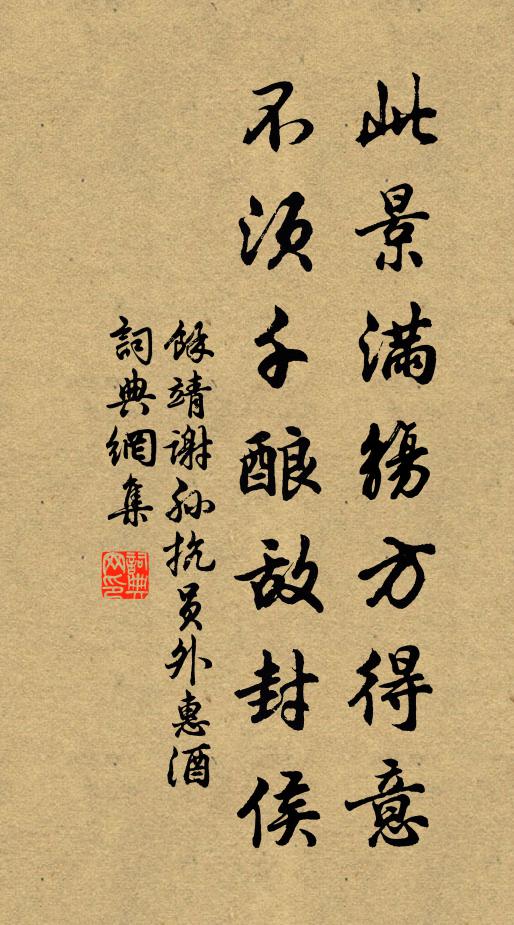 此景满觞方得意
不须千酿敌封侯
馀靖谢孙抗员外惠酒
詞典網集
詞典網印